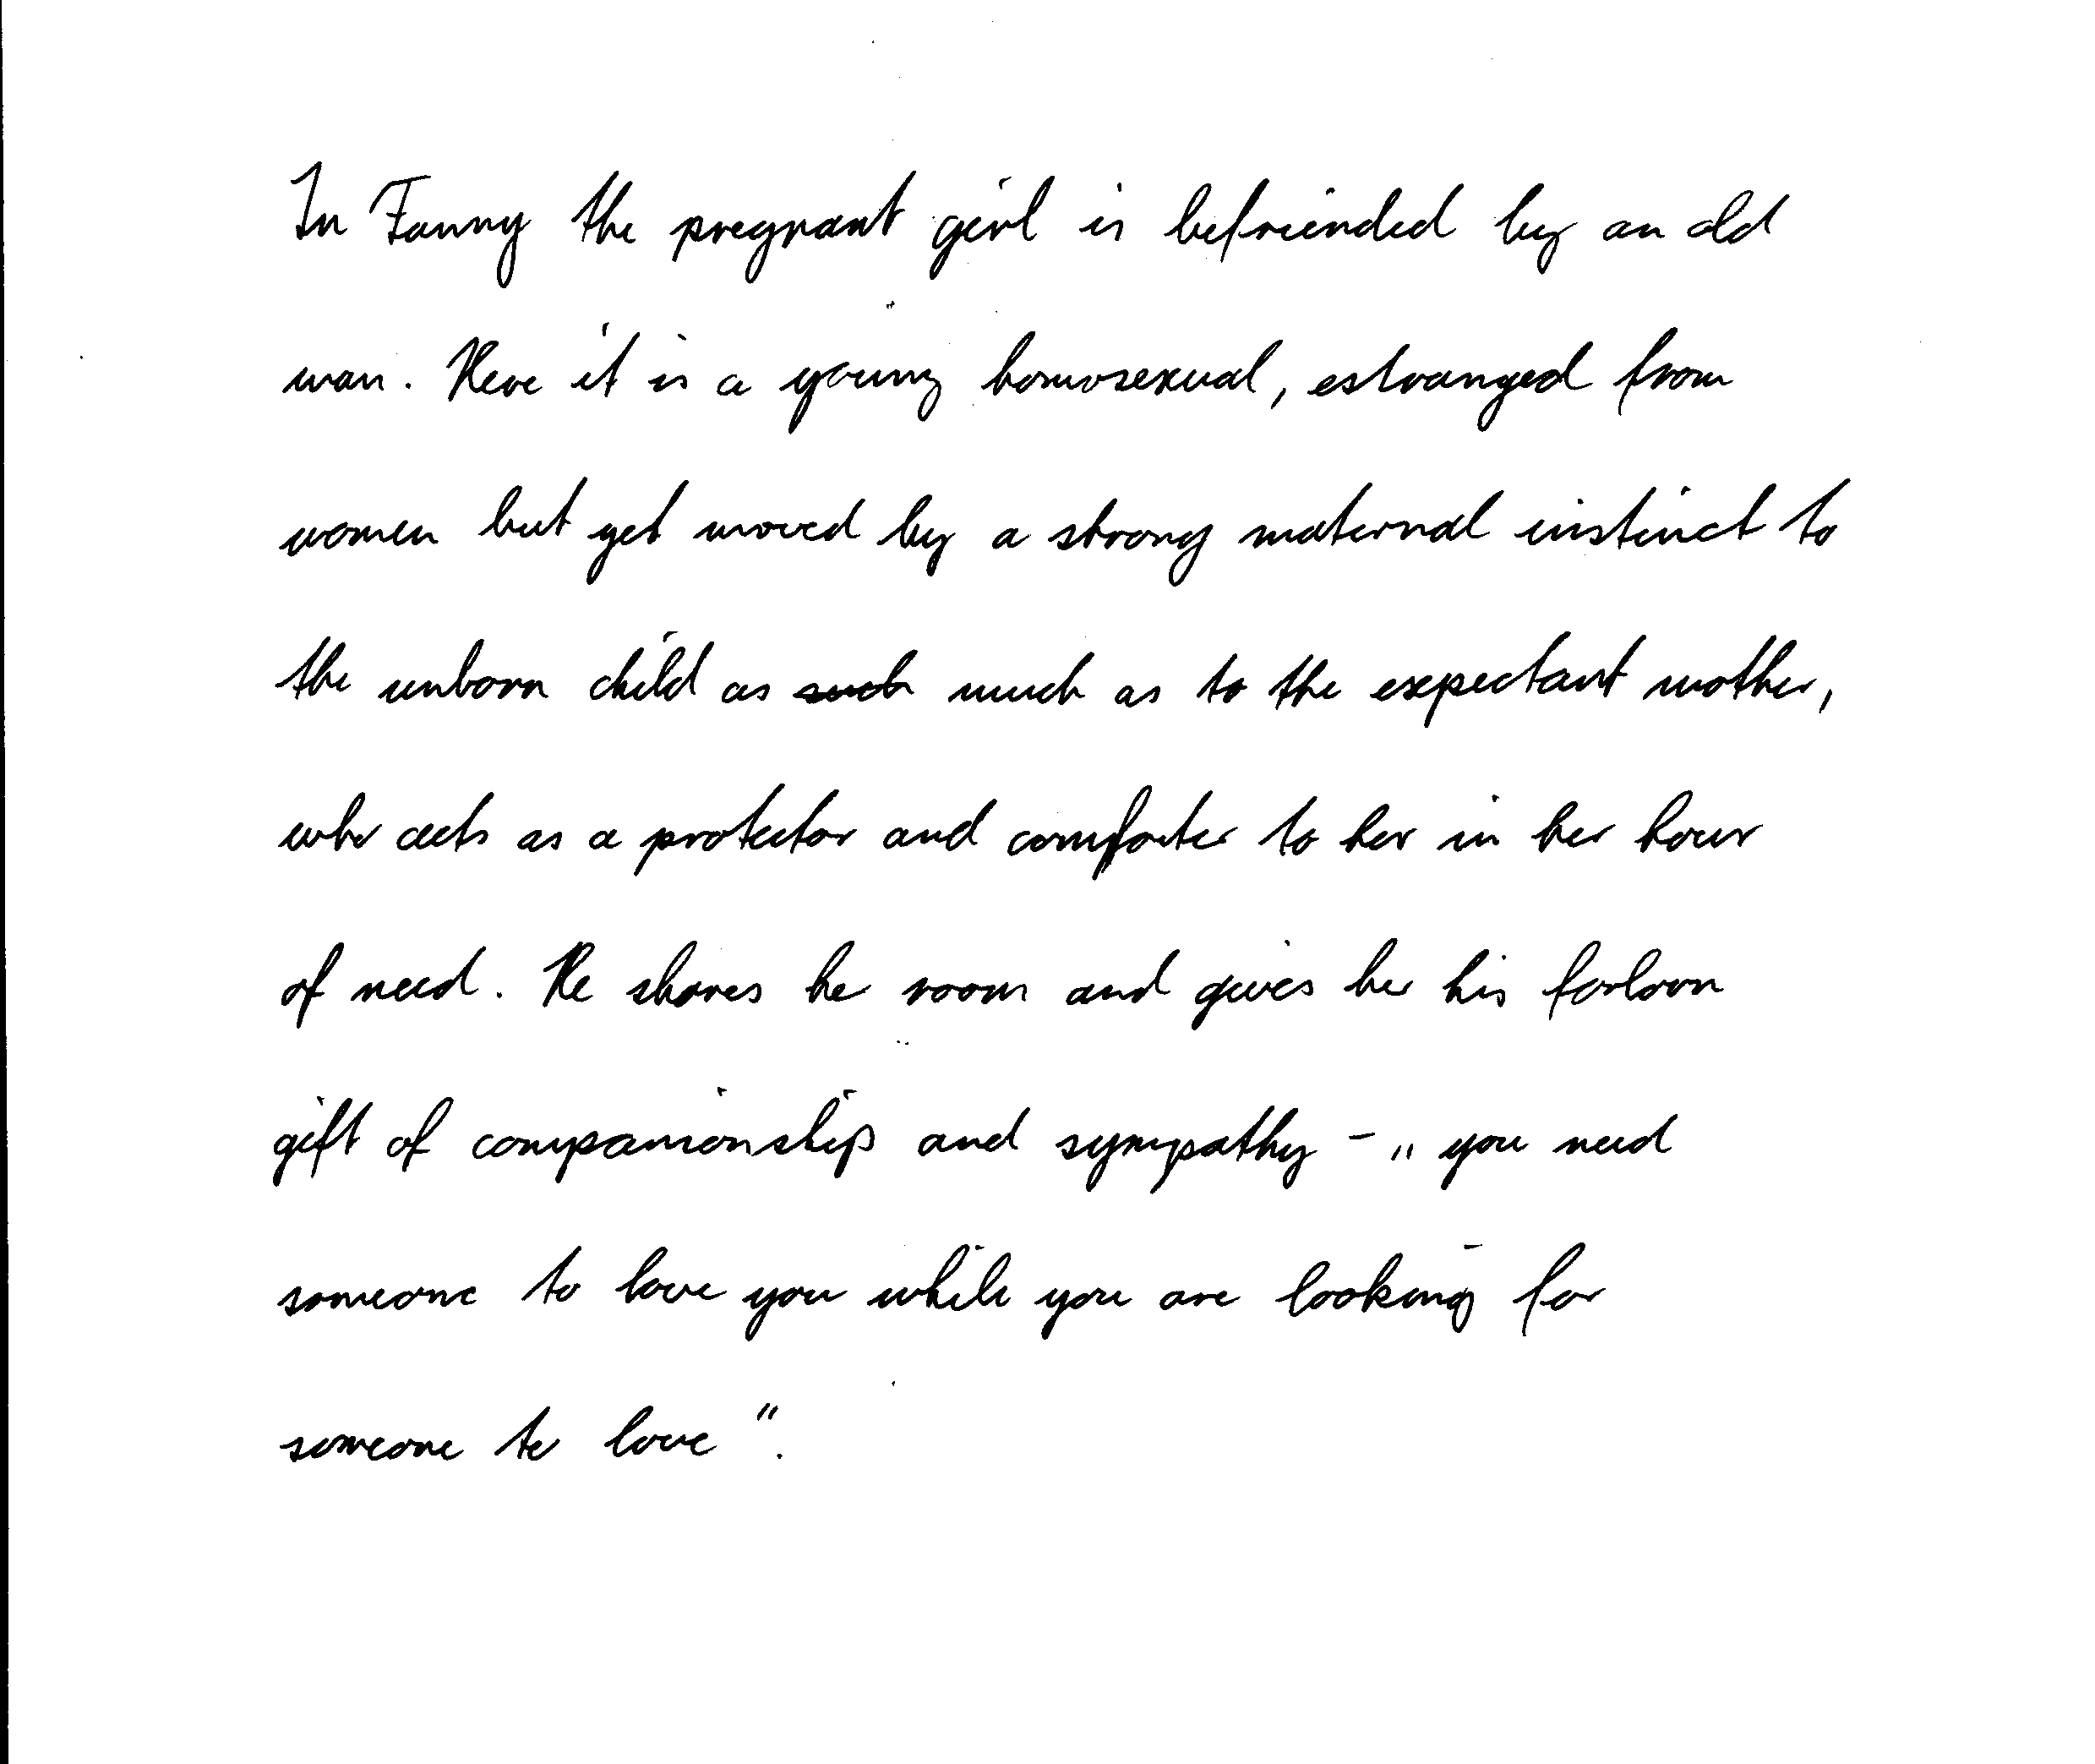 In Fanny the pregnant girl is befriended by an old
man. Here it is a young homosexual, estranged from
women but yet moved by a strong maternal instinct to
the unborn child as such much as to the expectant mother,
who acts as a protector and comforter to her in her hour
of need. He shares he room and gives her his forlorn
gift of companionship and sympathy - „you need
someone to love you while you are looking for
someone to love".